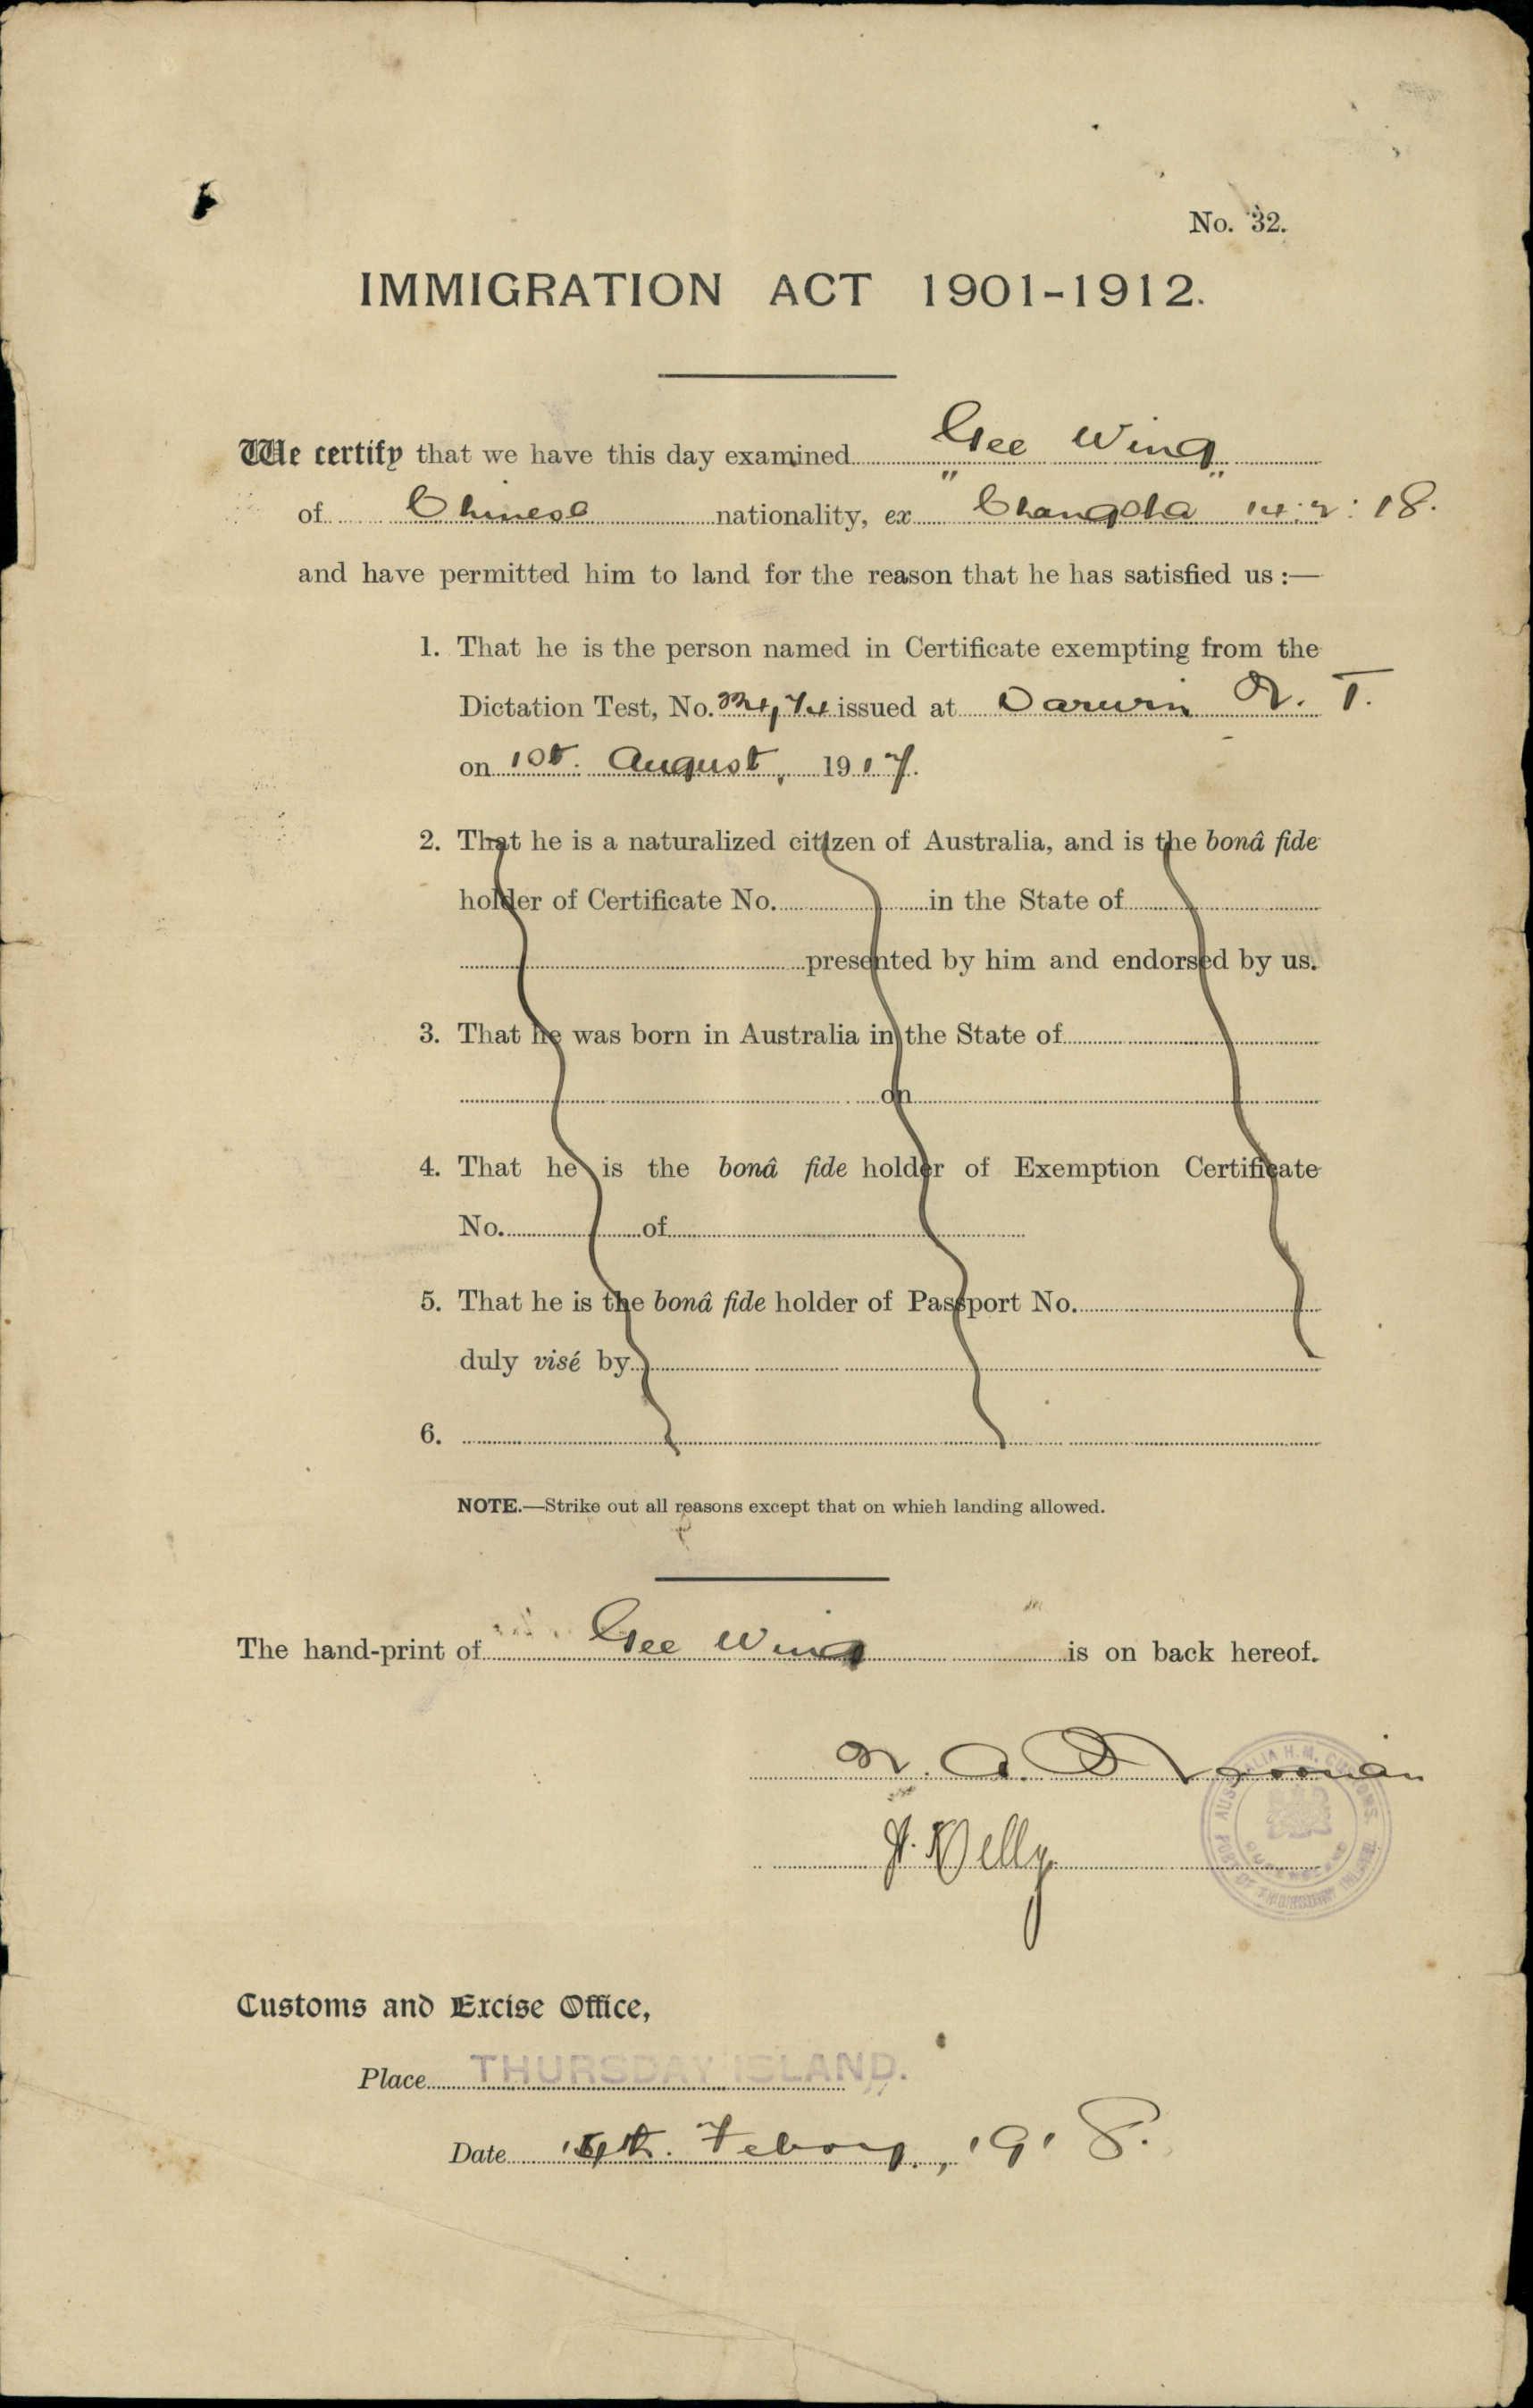 No. 32.
IMMIGRATION ACT 1901-1912.
We certify that we have this day examined Gee Wing
of Chinese nationality, ex "Changsha" 14:2:18.
and have permitted him to land for the reason that he has satisfied us :—
1. That he is the person named in Certificate exempting from the
Dictation Test, No. issued at Darwin N. T.
on 1st. August, 1917.
2. That he is a naturalized citizen of Australia, and is the bonâ fide
holder of Certificate No. in the State of
presented by him and endorsed by us.
3. That he was born in Australia in the State of
on
4. That he is the bonâ fide holder of Exemption Certificate
No. of
5. That he is the bonâ fide holder of Passport No.
duly visé by
6.
NOTE.—Strike out all reasons except that on which landing allowed.
The hand-print of Gee Wing is on back hereof.
AUSTRALIA H.M. CUSTOMS.
QUEENSLAND
PORT OF THURSDAY ISLAND.
J. Kelly
Customs and Excise Office,
Place THURSDAY ISLAND.
Date 14th. Febry., 1918.